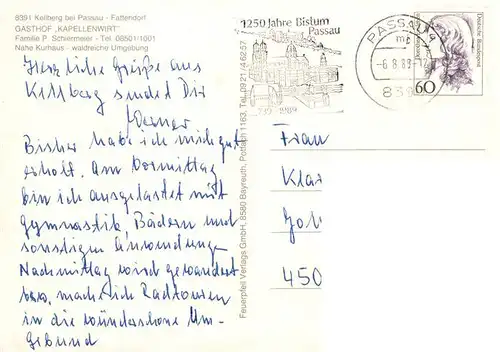 8391 Kellberg bei Passau - Fattendorf
GASTHOF „KAPELLENWIRT"
Familie P. Schiermeier - Tel. 08501/1001
Nahe Kurhaus - waldreiche Umgebung
Herzliche Grüße aus
Kellberg sendet Dir
Werner
Bisher habe ich mich gut
erholt. Am Vormittag
bin ich ausgelastet mit
Gymnastik, Bädern und
sonstigen Anwendungen
Nachmittag wird gewandert
bzw. mache ich Radtouren
in die wunderschöne Um-
gebung
Feuerpfeil Verlags GmbH, 8580 Bayreuth, Pottach 1163, Tel. 09 21 / 4 62 57
1250 Jahre Bistum
Passau
739 - 1989
PASSAU 4
-6.8.89-12
839
Deutsche Bundespost
60
Frau
Klar
Joh
450